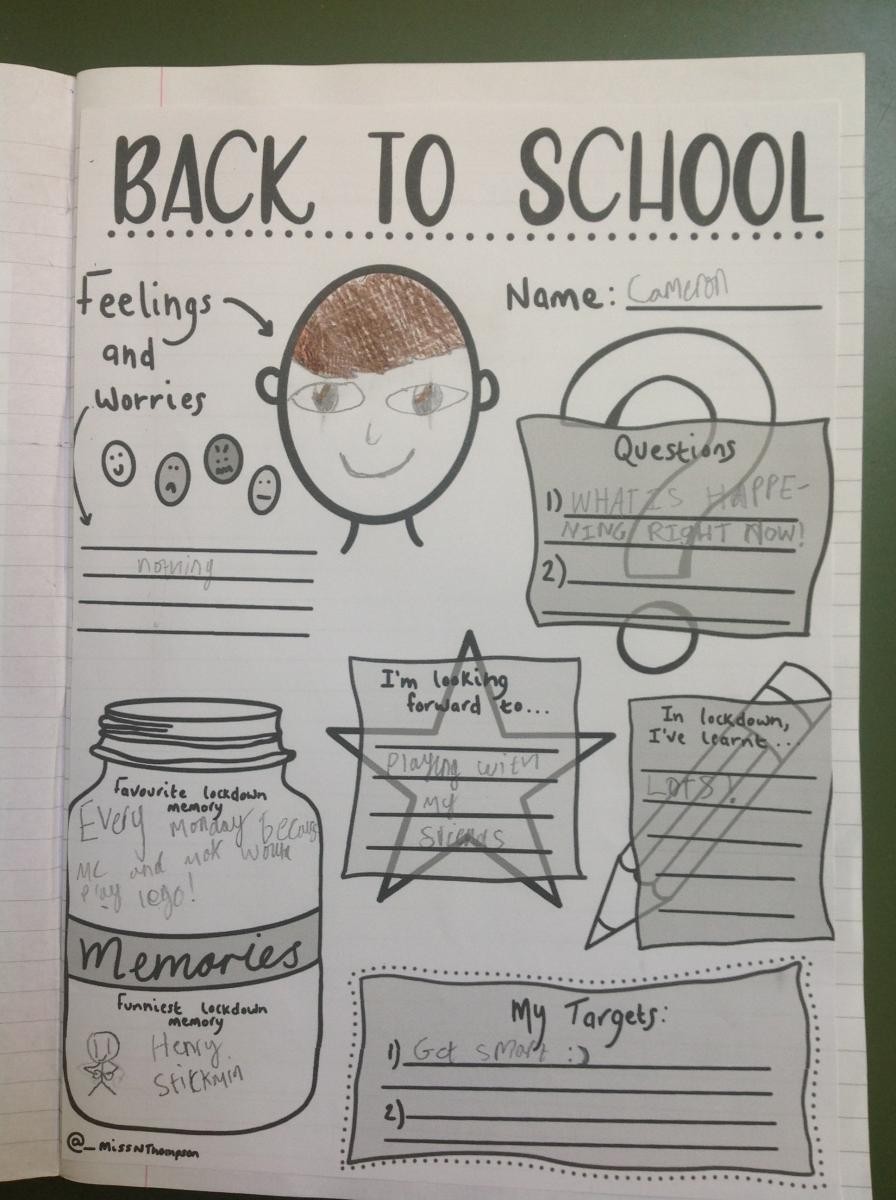 BACK TO SCHOOL
Feelings
and
Worries
nothing
Name: Cameron
Questions
1) WHAT IS HAPPE-
NING RIGHT NOW!
2)
I'm looking
forward to...
Playing with
my
In lockdown,
I've learnt...
LOTS!
Favourite lockdown
memory
Every Monday because
me and would
play lego!
Memories
Funniest lockdown
memory
Henry
Stickmin
My Targets:
1) Get smart :)
2)
@_MissNThompson